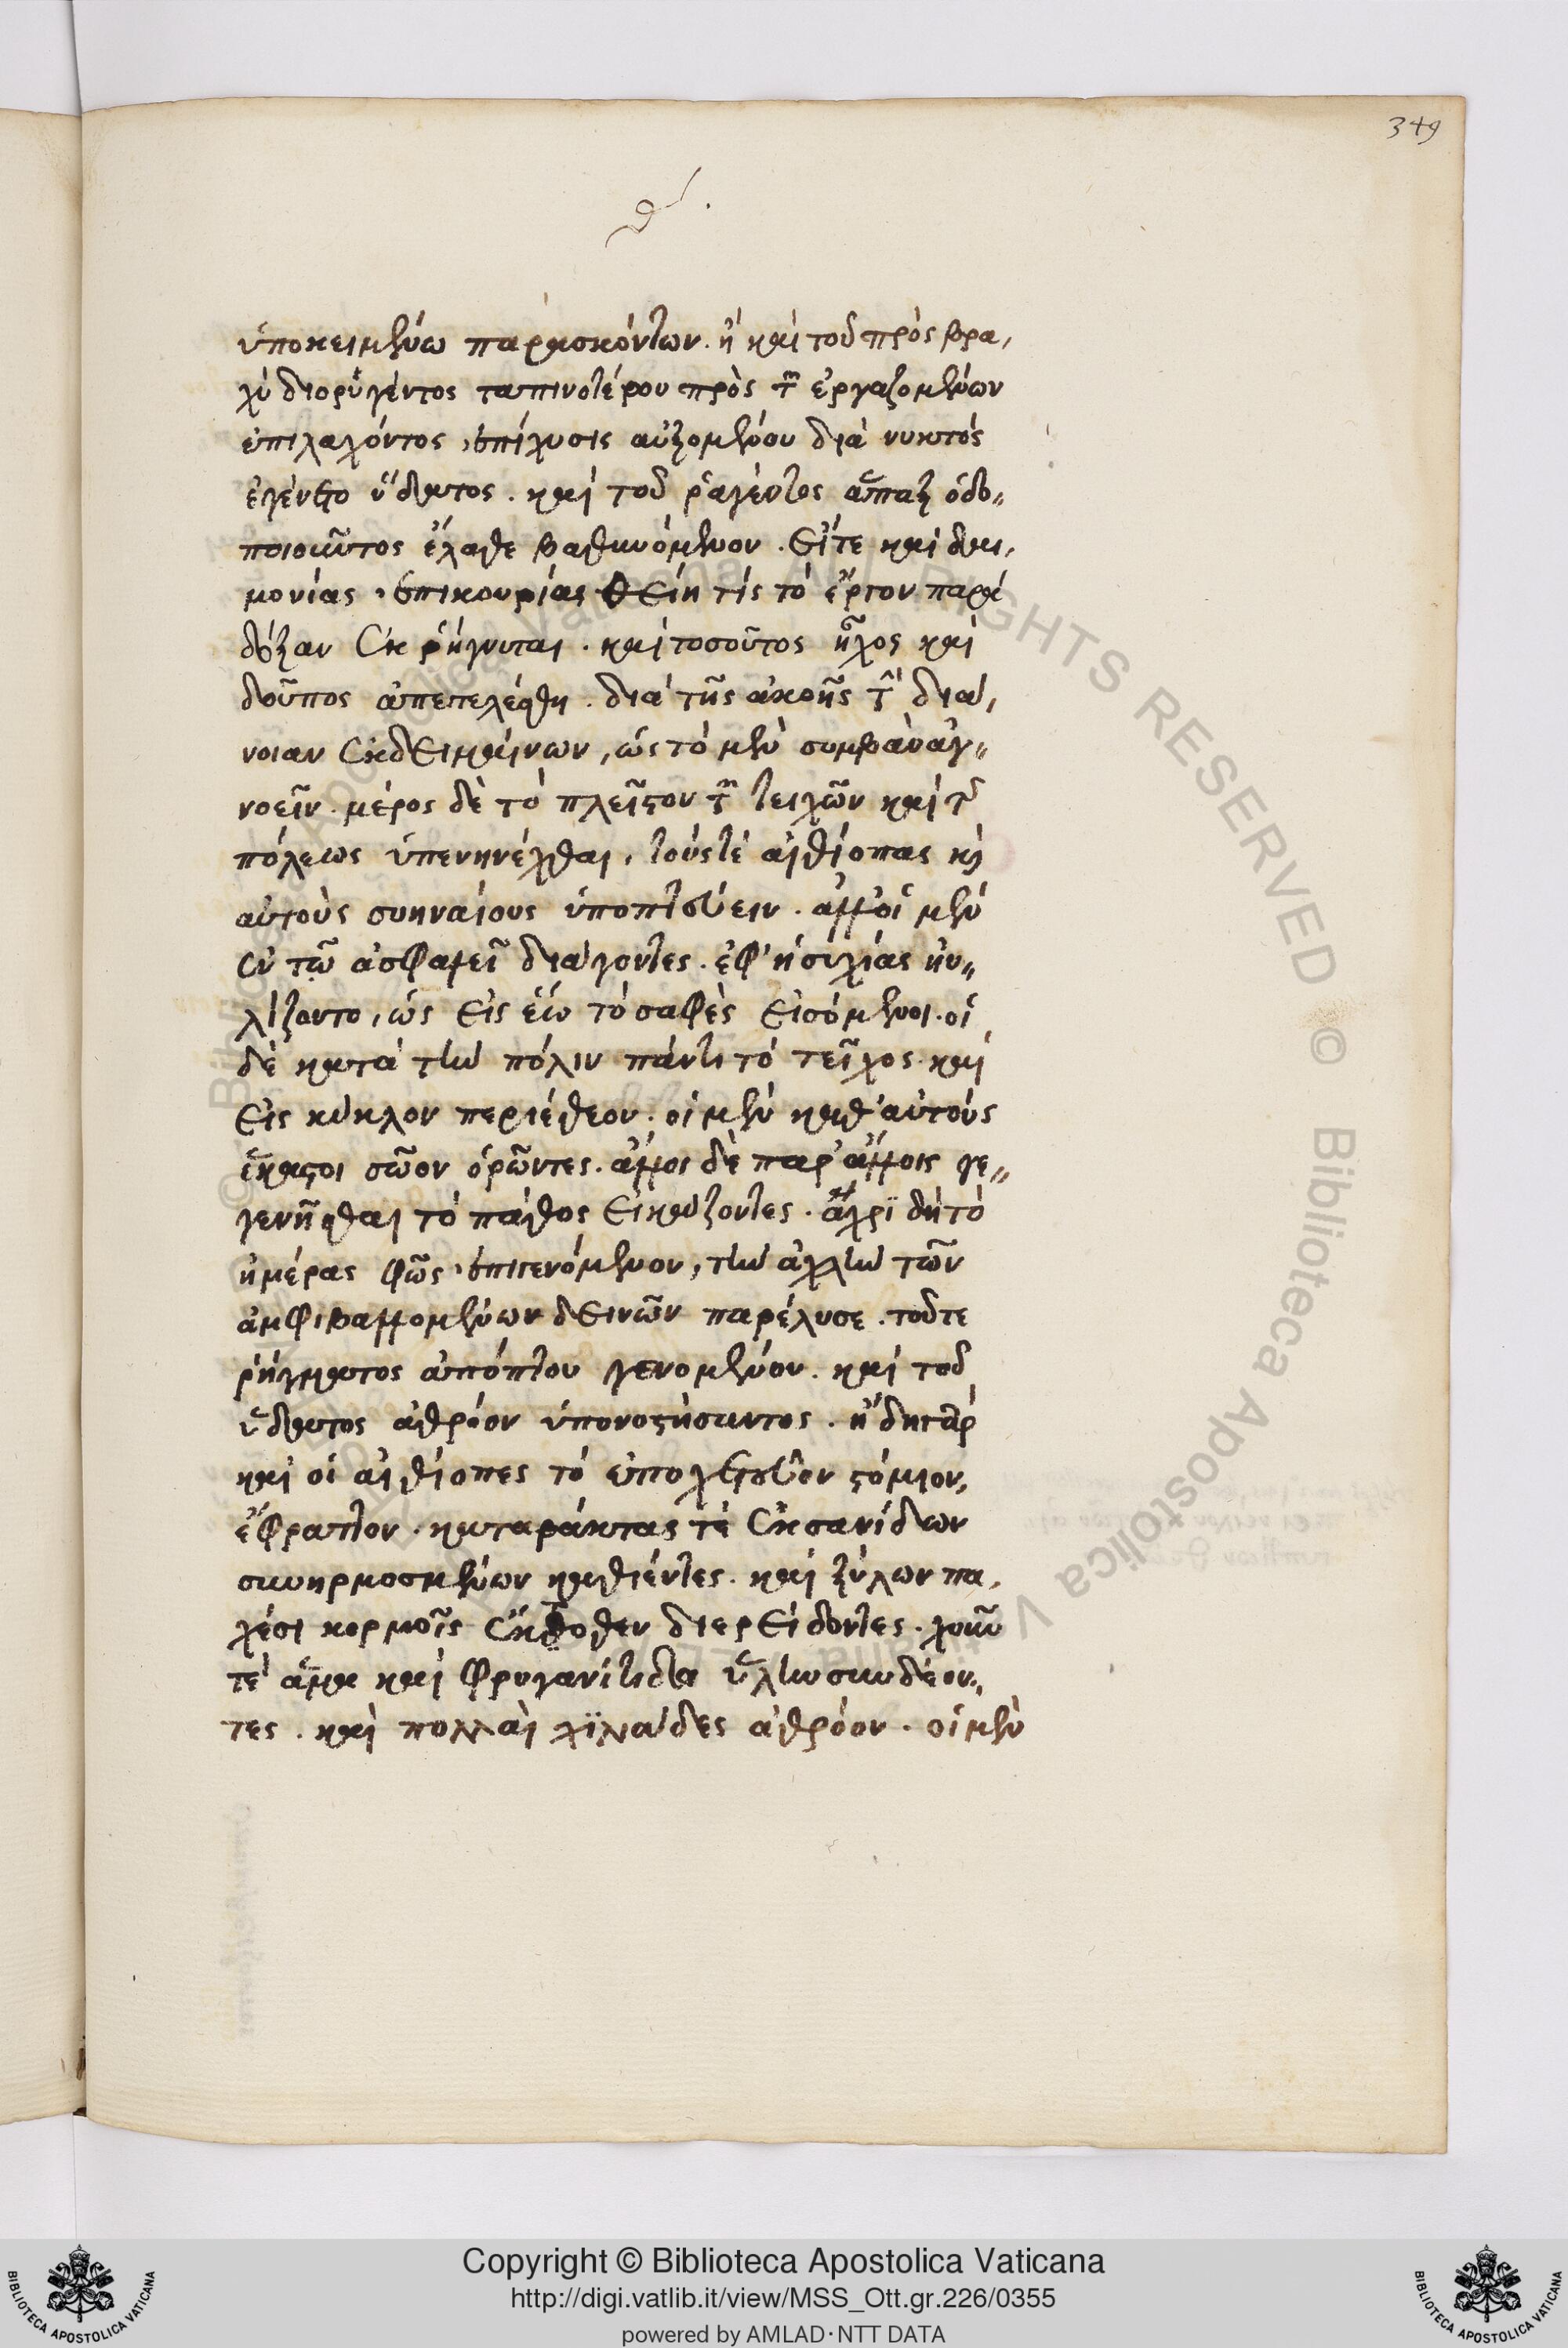 349
θ΄.
ὑποκειμένω παρασκόντων. ἢ καὶ τοῦ πρὸς βρα,
χὺ διορυγέντος ταπινοτέρου πρὸς τῶν ἐργαζομένων
ἐπιλαχόντος, ἐπίχυσις αὐξομένου διὰ νυκτὸς
ἐγένετο ὕδατος. καὶ τοῦ ῥαγέντος ἅπαξ ὁδο,,
ποιοῦντος ἔλαθε βαθυνόμενον. εἴτε καὶ δαι,
μονίας ἐπικουρίας θείη τίς τὸ ἔργον παρὰ
δόξαν ἐκρήγνυται. καὶ τοσοῦτος ἦχος καὶ
δοῦπος ἀπετελέσθη. διὰ τῆς ἀκοῆς τὴν διά,
νοιαν ἐκδειμαίνων, ὡς τὸ μὲν συμβὰν ἀγ,,
νοεῖν. μέρος δὲ τὸ πλεῖστον τῶν τειχῶν καὶ τῆς
πόλεως ὑπενηνέχθαι, τούς τε αἰθίοπας καὶ
αὐτοὺς συηναίους ὑποπτεύειν. ἀλλ' οἱ μὲν
ἐν τῷ ἀσφαλεῖ διάγοντες. ἐφ' ἡσυχίας ηὐ,,
λίζοντο, ὡς εἰς ἕω τὸ σαφὲς εἰσόμενοι. οἱ
δὲ κατὰ τὴν πόλιν πάντη τὸ τεῖχος. καὶ
εἰς κύκλον περιέθεον. οἱ μὲν καθ' αὑτοὺς
ἕκαστοι σῶον ὁρῶντες. ἄλλοι δὲ παρ' ἄλλοις γε,,
γενῆσθαι τὸ πάθος εἰκάζοντες. ἄχρι δὴ τὸ
ἡμέρας φῶς ἐπιγενόμενον, τὴν ἀχλὺν τῶν
ἀμφιβαλλομένων δεινῶν παρέλυσε. τοῦτε
ῥήγματος ἀπόπτου γενομένου. καὶ τοῦ
ὕδατος ἀθρόον ὑπονοστήσαντος. ἤδη γὰρ
καὶ οἱ αἰθίοπες τὸ ἐποχετεῦον στόμιον,
ἔφραττον. καταράκτας τὲ ἐκ σανίδων
συνηρμοσμένων καθιέντες. καὶ ξύλων πα,
χέσι κορμοῖς ἔκτοθεν διερείδοντες. χοῦν
τὲ ἅμα καὶ φρυγανίτιδα ὕλην συνδέον,,
τες. καὶ πολλαὶ χϊλιάδες ἀθρόον. οἱ μὲν
Copyright © Biblioteca Apostolica Vaticana
http://digi.vatlib.it/view/MSS_Ott.gr.226/0355
powered by AMLAD·NTT DATA